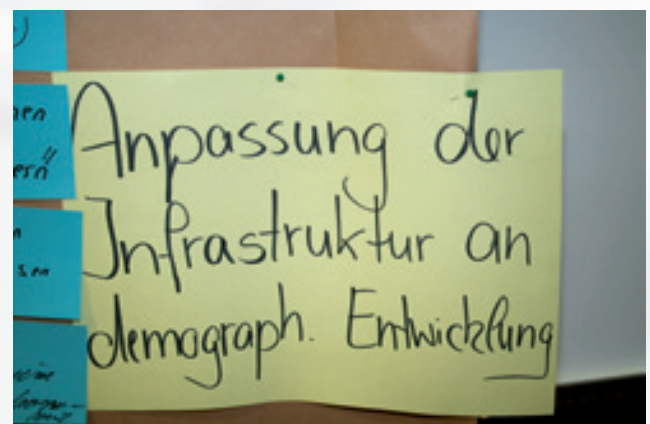 Anpassung der
Infrastruktur an
demograph. Entwicklung